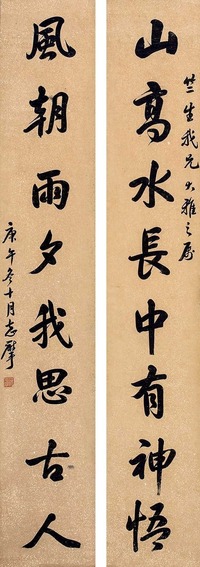 竺生我兄大雅之属
山高水長中有神悟
風朝雨夕我思古人
庚午冬十月志擊